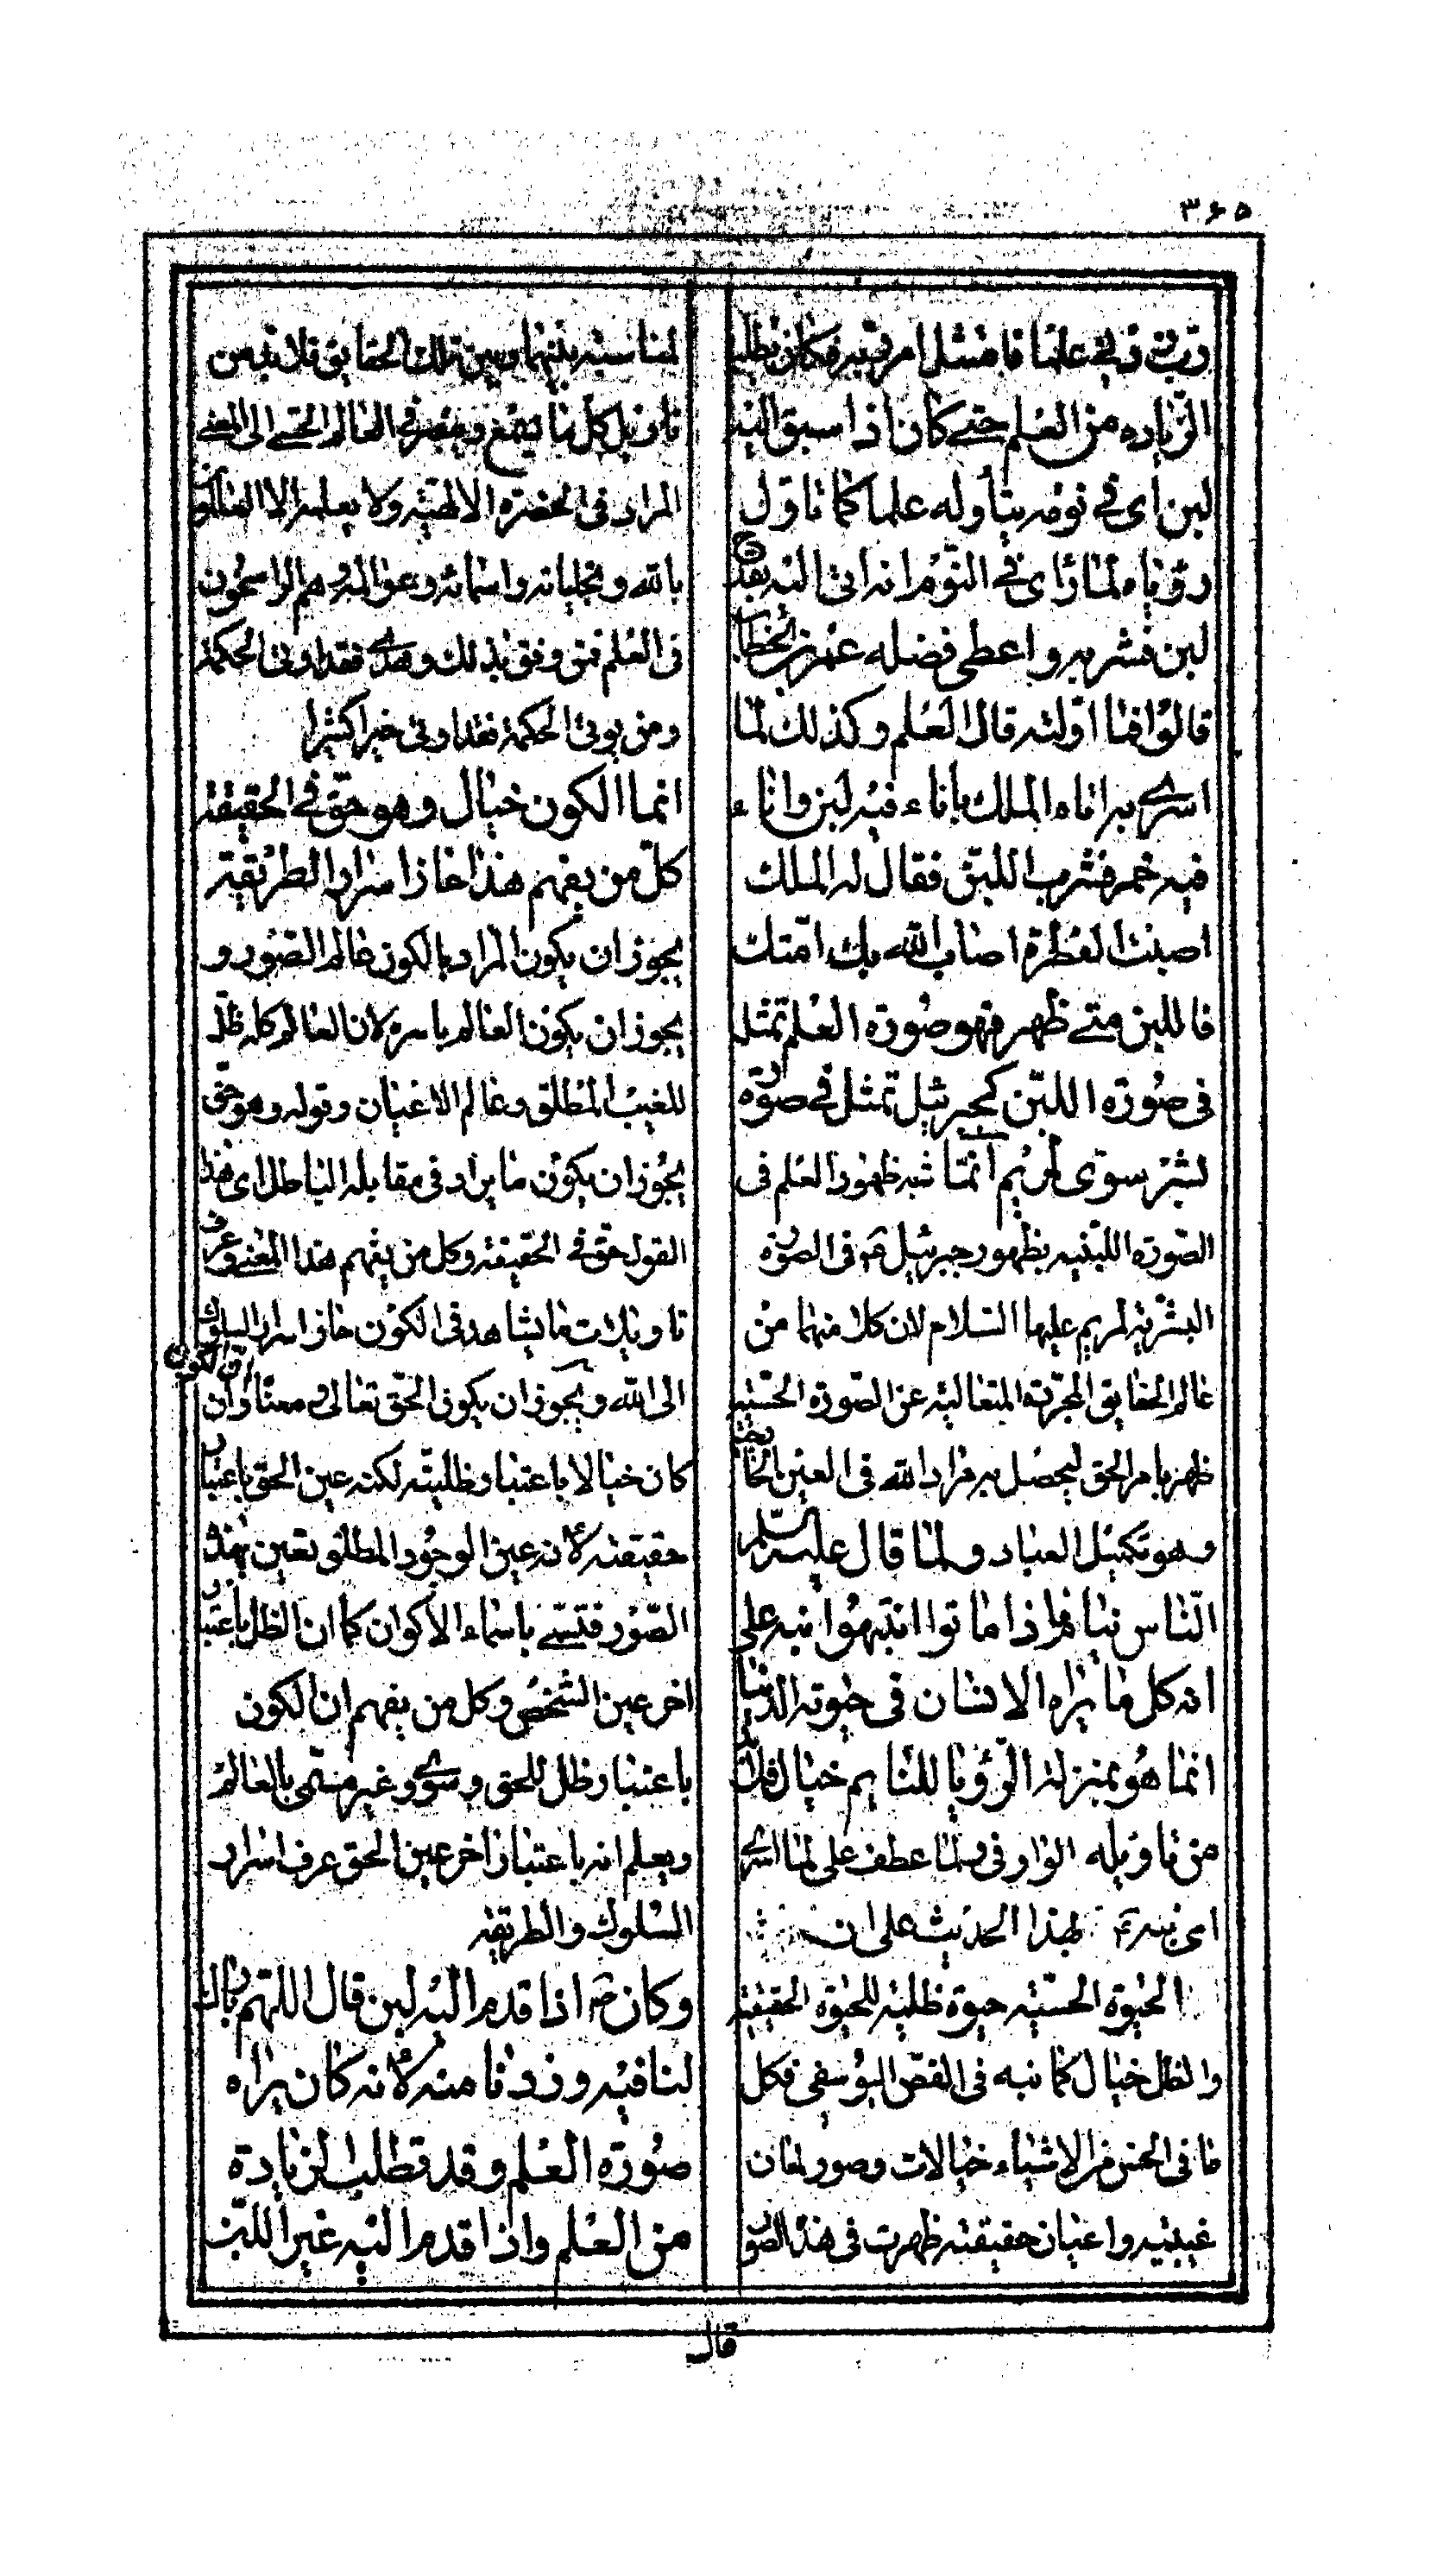 ۳۶۵
رب زدنی علما فامتثل امر ربه فكان یطلب
الزیادة من العلم حتی كان اذا سیق الیه
لبن ای فی نومه یتأوله علما كما تاول
رؤیاه لما رأی فی النوم انه اتی الیه بقدح
لبن فشربه و اعطی فضله عمر بن الخطاب
قالوا فما اولته قال العلم و كذلك لما
اسری به اتاه الملك باناء فیه لبن و اناء
فیه خمر فشرب اللبن فقال له الملك
اصبت الفطرة اصاب الله بك امتك
فاللبن متی ظهر فهو صورة العلم تمثل
فی صورة اللبن كجبرئیل تمثل فی صورة
بشر سوی لمریم انما شبه ظهور العلم فی
الصورة اللبنیه بظهور جبرئیل ع فی الصورة
البشریة لمریم علیها السلام لان كلا منهما من
عالم الحقایق المجردة المتعالیة عن الصورة الحسیة
ظهر بامر الحق لیحصل به مراد الله فی العین الخارجیة
و هو تكمیل العباد و لما قال علیه السلم
الناس نیام فاذا ماتوا انتبهوا نبه علی
انه كل ما یراه الانسان فی حیوته الدنیا
انما هو بمنزلة الرؤیا للنایم خیال فلابد
من تاویله الواو فی ولما عطف علی لما اسری
ای نبه لهذا الحدیث علی ان
الحیوة الحسیة حیوة ظلیة للحیوة الحقیقیة
والظل خیال كما نبه فی الفص الیوسفی فكل
ما فی الحس من الاشیاء خیالات و صور لمعان
غیبیه و اعیان حقیقته ظهرت فی هذه الصور
لمناسبة بینها و بین تلك الحقایق فلابد من
تاویل كل ما یسمع و یبصر فی العالم الحسی الی المعنی
المراد فی الحضرة الالهیة ولا یعلمه الا العالمون
بالله و تجلیاته و اسمائه و عوالمه و هم الراسخون
فی العلم فمن وفق بذلك و هدی فقد اوتی الحكمة
و من یوتی الحكمة فقد اوتی خیرا كثیرا
انما الكون خیال و هو حق فی الحقیقة
كل من یفهم هذا حاز اسرار الطریقة
یجوز ان یكون المراد بالكون عالم الصور و
یجوز ان یكون العالم باسره لان العالم كله ظل
للغیب المطلق و عالم الاعیان و قوله و هو حق
یجوز ان یكون ما یراد فی مقابله الباطل ای هذا
القول حق فی الحقیقة و كل من یفهم هذا المعنی و عرف
تاویلات ما یشاهد فی الكون حاز اسرار السلوك
الی الله و یجوز ان یكون الحق تعالی و معناه ان الكون و ان
كان خیالا باعتبار ظلیته لكنه عین الحق باعتبار
حقیقته لانه عین الوجود المطلق تعین بهذه
الصور فتسمی باسماء الاكوان كما ان الظل باعتبار
اخر عین الشخص و كل من یفهم ان الكون
باعتبار ظل للحق و سوی و غیر مسمی بالعالم
و یعلم انه باعتبار اخر عین الحق عرف اسرار
السلوك و الطریقه
و كان ص اذا قدم الیه لبن قال اللهم بارك
لنا فیه و زدنا منه لانه كان یراه
صورة العلم و قد تطلب الزیادة
من العلم و اذا قدم الیه غیر اللبن
قال